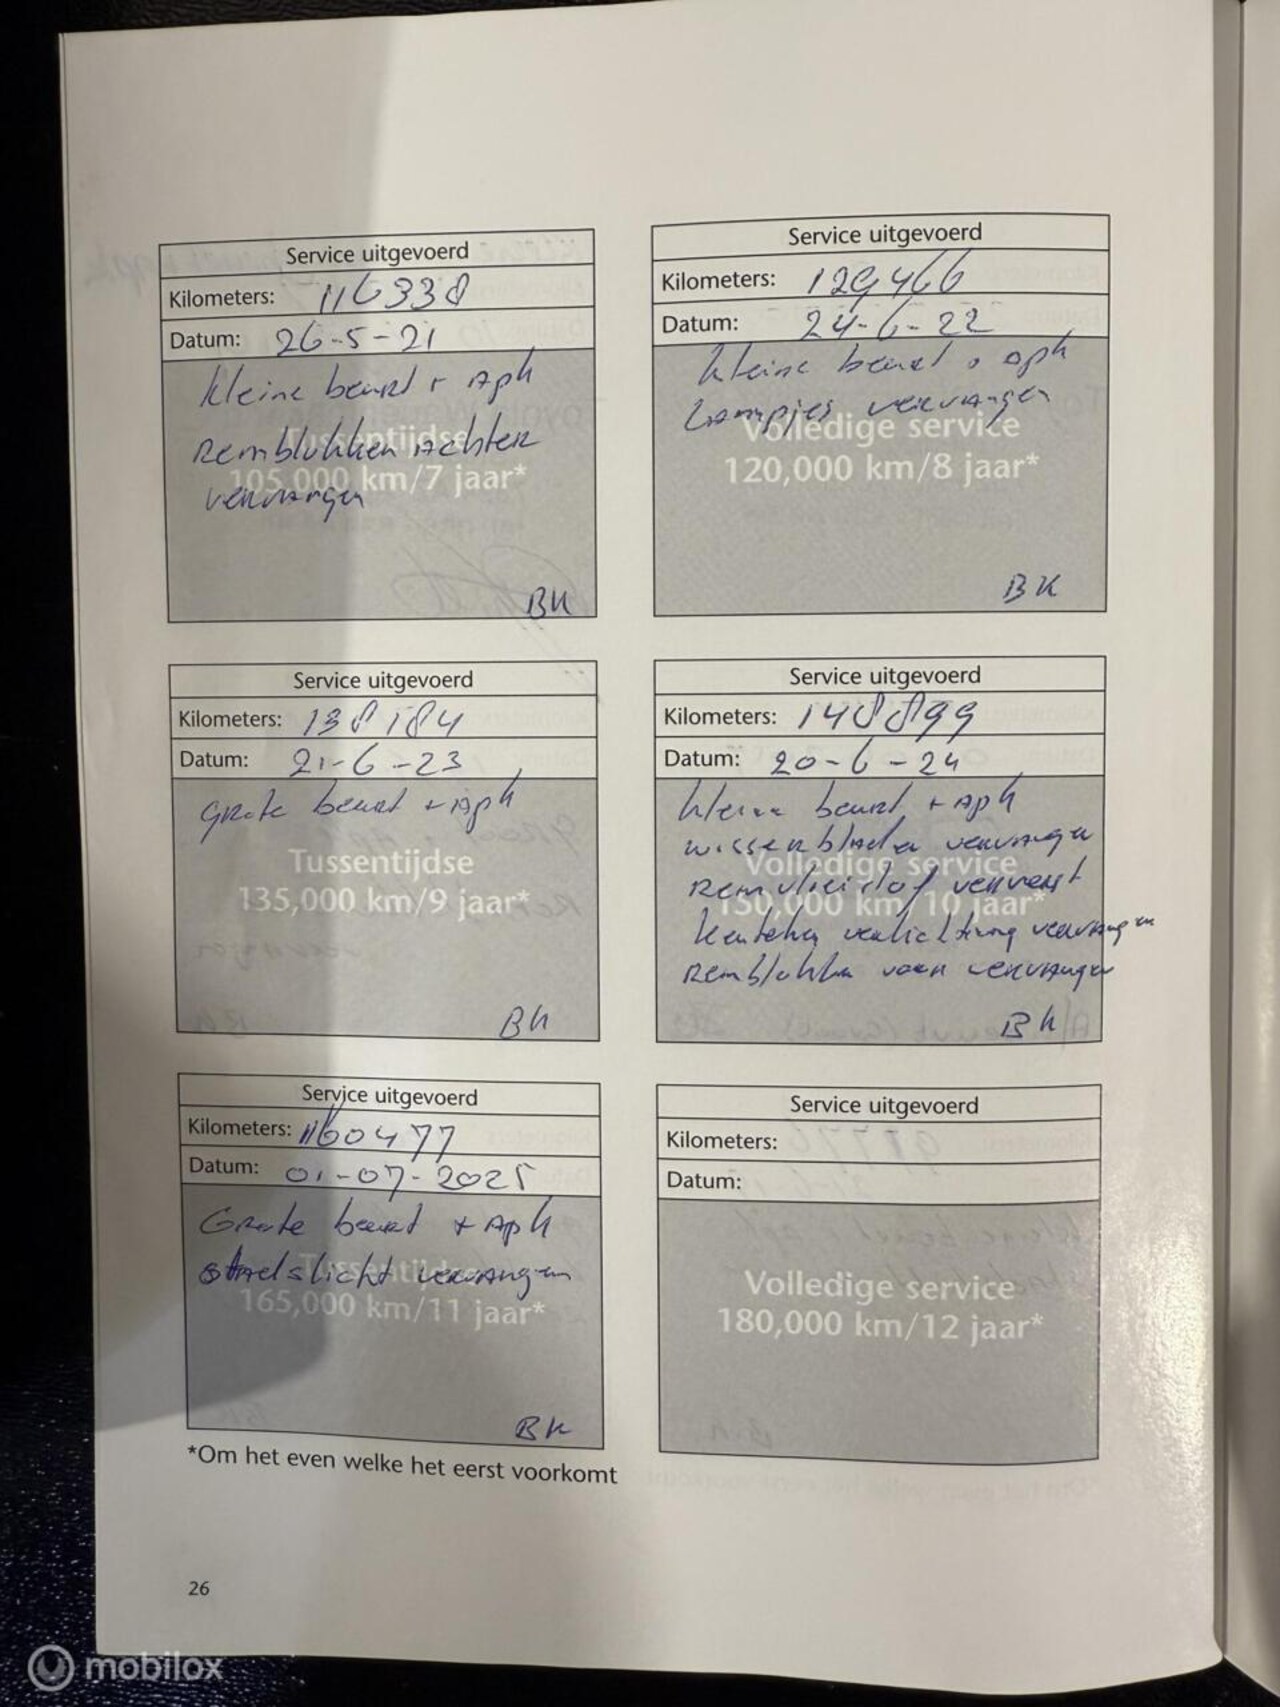 Service uitgevoerd
Kilometers: 116338
Datum: 26-5-21
Kleine beurt + Apk
Remblokken Achter
vervangen
Tussentijdse
105,000 km/7 jaar*
BK
Service uitgevoerd
Kilometers: 129466
Datum: 24-6-22
Kleine beurt + apk
Lampjes vervangen
Volledige service
120,000 km/8 jaar*
BK
Service uitgevoerd
Kilometers: 138184
Datum: 21-6-23
Grote beurt + Apk
Tussentijdse
135,000 km/9 jaar*
BK
Service uitgevoerd
Kilometers: 148899
Datum: 20-6-24
Kleine beurt + Apk
wissenbladen vervangen
Volledige service
Remvloeistof ververst
150,000 km/10 jaar*
Kenteken verlichting vervangen
Remblokken voor vervangen
BK
Service uitgevoerd
Kilometers: 160477
Datum: 01-07-2025
Grote beurt + Apk
stadslicht vervangen
Tussentijdse
165,000 km/11 jaar*
BK
Service uitgevoerd
Kilometers:
Datum:
Volledige service
180,000 km/12 jaar*
*Om het even welke het eerst voorkomt
26
mobilox